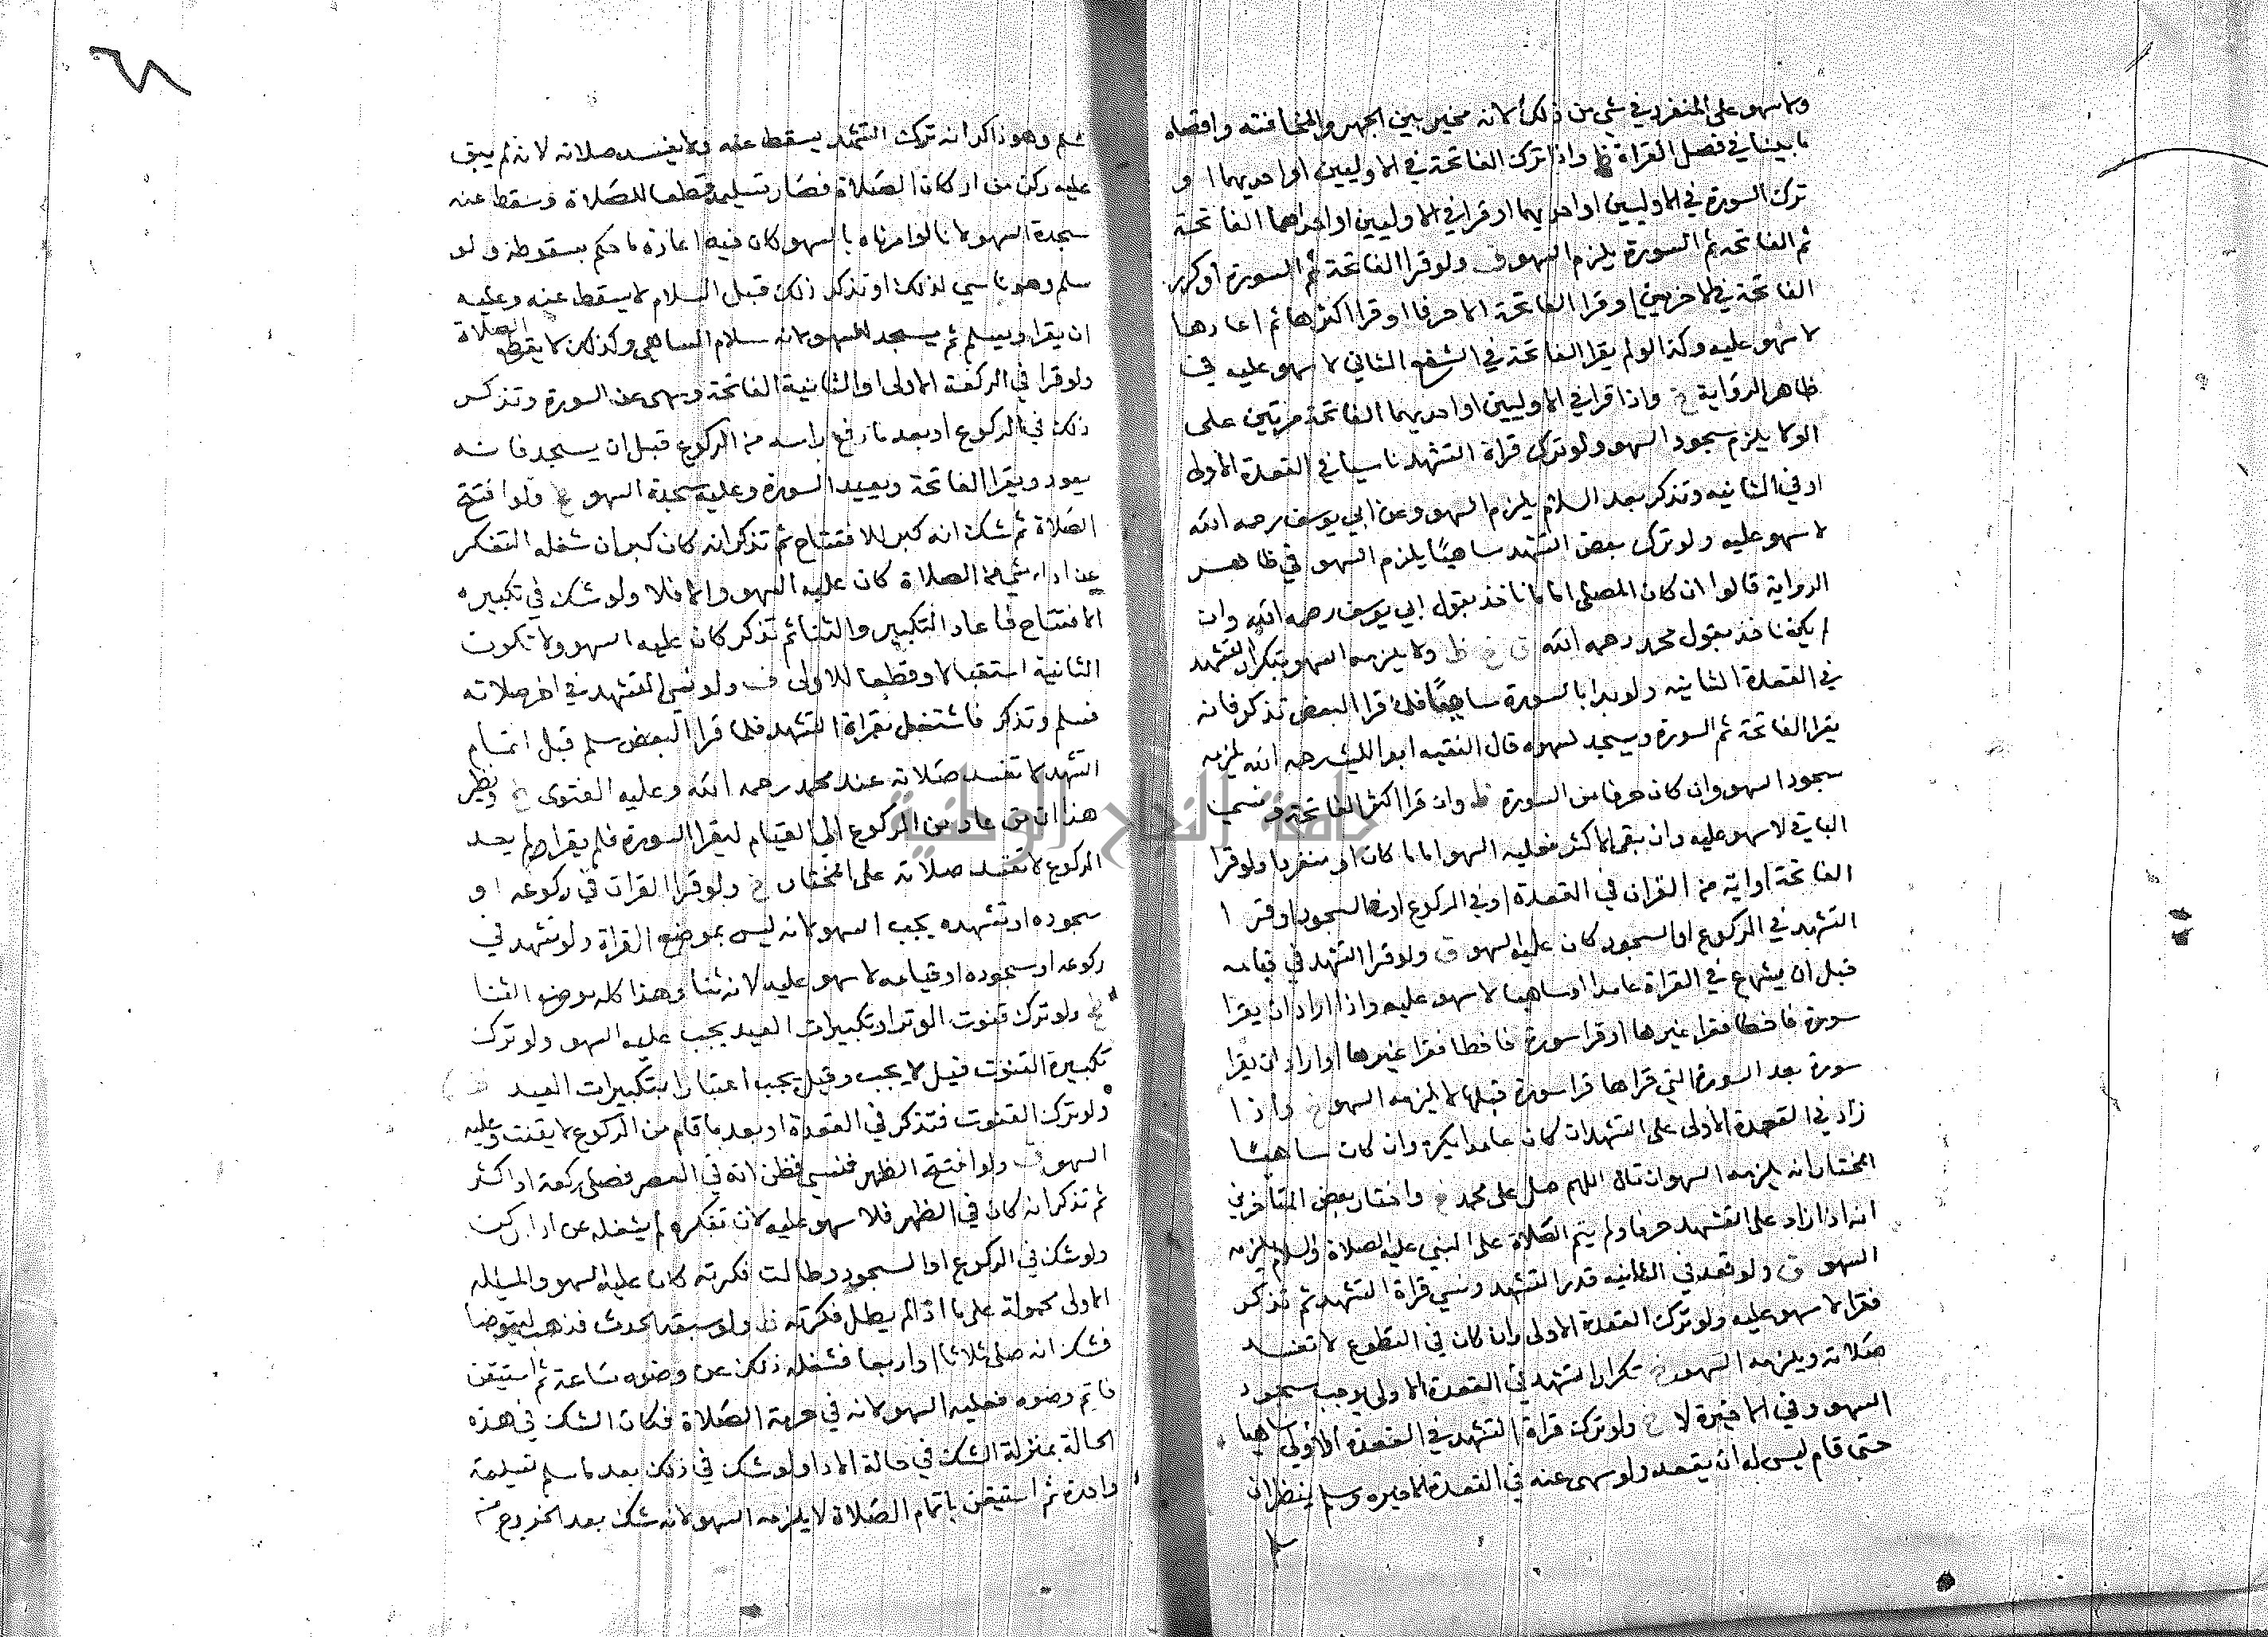 ولا سهو على المنفرد في شي من ذلك لانه مخير بين الجهر والمخافتة واقصاه
ما بينا في فصل القراة ظ واذا ترك الفاتحة في الاوليين او احديهما او
ترك السورة في الاوليين او احديهما او قرا في الاوليين او احداهما الفاتحة
ثم الفاتحة ثم السورة يلزم السهو ف ولو قرا الفاتحة ثم السورة او كرر
الفاتحة في الاخريين او قرا الفاتحة الا حرفا او قرا اكثرها ثم اعادها
لا سهو عليه وكذا لو لم يقرا الفاتحة في الشفع الثاني لا سهو عليه في
ظاهر الرواية خ واذا قرا في الاوليين او احديهما الفاتحة مرتين على
الولا يلزم سجود السهو ولو ترك قراة التشهد ناسيا في القعدة الاولى
او في الثانيه وتذكر بعد السلام يلزم السهو وعن ابي يوسف رحمه الله
لا سهو عليه ولو ترك بعض التشهد ساهيا يلزم السهو في ظاهر
الرواية قالوا ان كان المصلي اماما ناخذ بقول ابي يوسف رحمه الله وان
لم يكن ناخذ بقول محمد رحمه الله ق خ ظ ولا يلزمه السهو بتكرار التشهد
في القعدة الثانيه ولو بدا بالسورة ساهيا فلما قرا البعض تذكر فانه
يقرا الفاتحة ثم السورة ويسجد لسهوه قال الفقيه ابو الليث رحمه الله يلزمه
سجود السهو وان كان حرفا من السورة ظ وان قرا اكثر الفاتحة ونسي
الباقي لا سهو عليه وان بقي الاكثر فعليه السهو اماما كان او منفردا ولو قرا
الفاتحة او اية من القران في القعدة او في الركوع او في السجود او قرا
التشهد في الركوع او السجود كان عليه السهو ق ولو قرا التشهد في قيامه
قبل ان يشرع في القراة عامدا او ساهيا لا سهو عليه واذا اراد ان يقرا
سورة فاخطا فقرا غيرها او قرا سورة فاخطا فقرا غيرها او اراد ان يقرا
سورة بعد السورة التي قراها قرا سورة قبلها لا يلزمه السهو خ واذا
زاد في القعدة الاولى على التشهد ان كان عامدا يكره وان كان ساهيا
المختار انه يلزمه السهو ان قال اللهم صل على محمد خ واختار بعض المتاخرين
انه اذا زاد على التشهد حرفا ولم يتم الصلاة على النبي عليه الصلاة والسلام يلزمه
السهو ق ولو قعد في الثانيه قدر التشهد ونسي قراة التشهد ثم تذكر
فقرا لا سهو عليه ولو ترك القعدة الاولى وان كان في التطوع لا تفسد
صلاته ويلزمه السهو خ تكرار التشهد في القعدة الاولى يوجب سجود
السهو وفي الاخيرة لا خ ولو ترك قراة التشهد في القعدة الاولى ساهيا
حتى قام ليس له ان يقعد ولو سهى عنه في القعدة الاخيره وسلم ينظر ان
سلم وهو ذاكر انه ترك التشهد يسقط عنه ولا يفسد صلاته لانه لم يبق
عليه ركن من اركان الصلاة فصار تسليمه قطعا للصلاة وسقط عنه
سجدة السهو لانا لو امرناه بالسهو كان فيه اعادة ما حكم بسقوطه ولو
سلم وهو ناسي لذلك او تذكر ذلك قبل السلام لا يسقط عنه وعليه
ان يقرا ويسلم ثم يسجد للسهو لانه سلام الساهي وكذلك لا يقطع الصلاة
ولو قرا في الركعة الاولى او الثانية الفاتحة وسهى عن السورة وتذكر
ذلك في الركوع او بعد ما رفع راسه من الركوع قبل ان يسجد فانه
يعود ويقرا الفاتحة ويعيد السورة وعليه سجدة السهو خ ولو افتتح
الصلاة ثم شك انه كبر للافتتاح ثم تذكر انه كان كبر ان شغله التفكر
عن اداء شي من الصلاة كان عليه السهو والا فلا ولو شك في تكبيره
الافتتاح فاعاد التكبير والثنا ثم تذكر كان عليه السهو ولا تكون
الثانية استقبالا وقطعا للاولى ف ولو نسي التشهد في اخر صلاته
فسلم وتذكر فاشتغل بقراة التشهد فلما قرا البعض سلم قبل اتمام
التشهد لا تفسد صلاته عند محمد رحمه الله وعليه الفتوى خ ونظير
هذا ان من عاد من الركوع الى القيام ليقرا السورة فلم يقرا ولم يعد
الركوع لا تفسد صلاته على المختار خ ولو قرا القران في ركوعه او
سجوده او تشهده يجب السهو لانه ليس بموضع القراة ولو تشهد في
ركوعه او سجوده او قيامه لا سهو عليه لانه ثنا وهذا كله موضع الثنا
ظ ولو ترك قنوت الوتر او تكبيرات العيد يجب عليه السهو ولو ترك
تكبيرة القنوت قيل لا يجب وقيل يجب اعتبارا بتكبيرات العيد
ولو ترك القنوت فتذكر في القعدة او بعد ما قام من الركوع لا يقنت وعليه
السهو ف ولو افتتح الظهر فنسي فظن انه في العصر فصلى ركعة او اكثر
ثم تذكر انه كان في الظهر فلا سهو عليه لان تفكره لم يشغله عن ادا ركن
ولو شك في الركوع او السجود وطالت فكرته كان عليه السهو والمسئله
الاولى محمولة على ما اذا لم يطل فكرته ظ ولو سبقه الحدث فذهب ليتوضا
فشك انه صلى ثلاثا او اربعا فشغله ذلك عن وضوه ساعة ثم استيقن
فاتم وضوه فعليه السهو لانه في حرمة الصلاة فكان الشك في هذه
الحالة بمنزلة الشك في حالة الادا ولو شك في ذلك بعد ما سلم تسليمة
واحدة ثم استيقن باتمام الصلاة لا يلزمه السهو لانه شك بعد الخروج
جامعة النجاح الوطنية